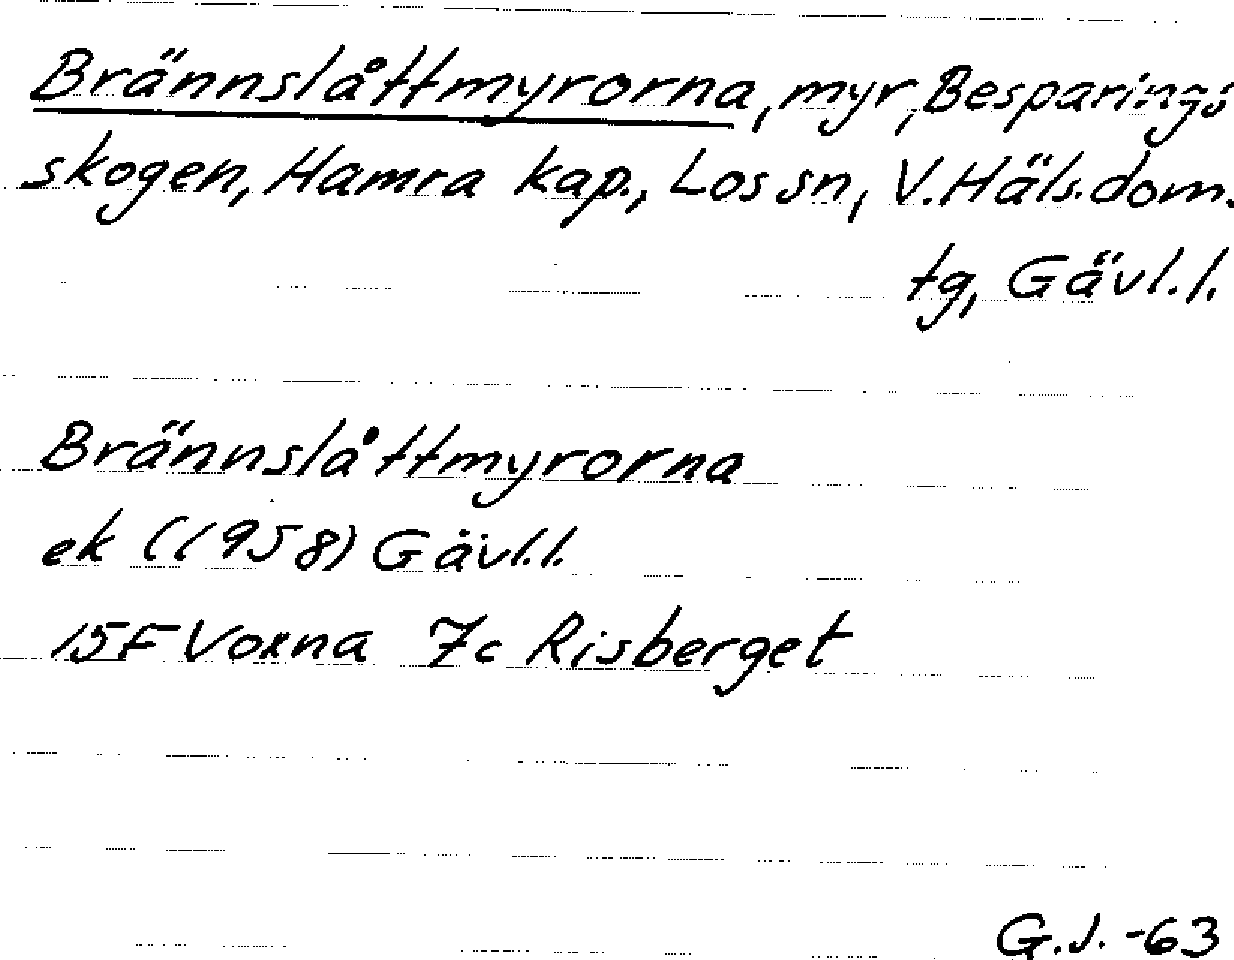 Brännslåttmyrorna, myr, Besparings
skogen, Hamra kap., Los sn, V. Häls. dom.
tg, Gävl. l.
Brännslåttmyrorna
ek (1958) Gävl.l.
15F Voxna 7c Risberget
G.J. -63